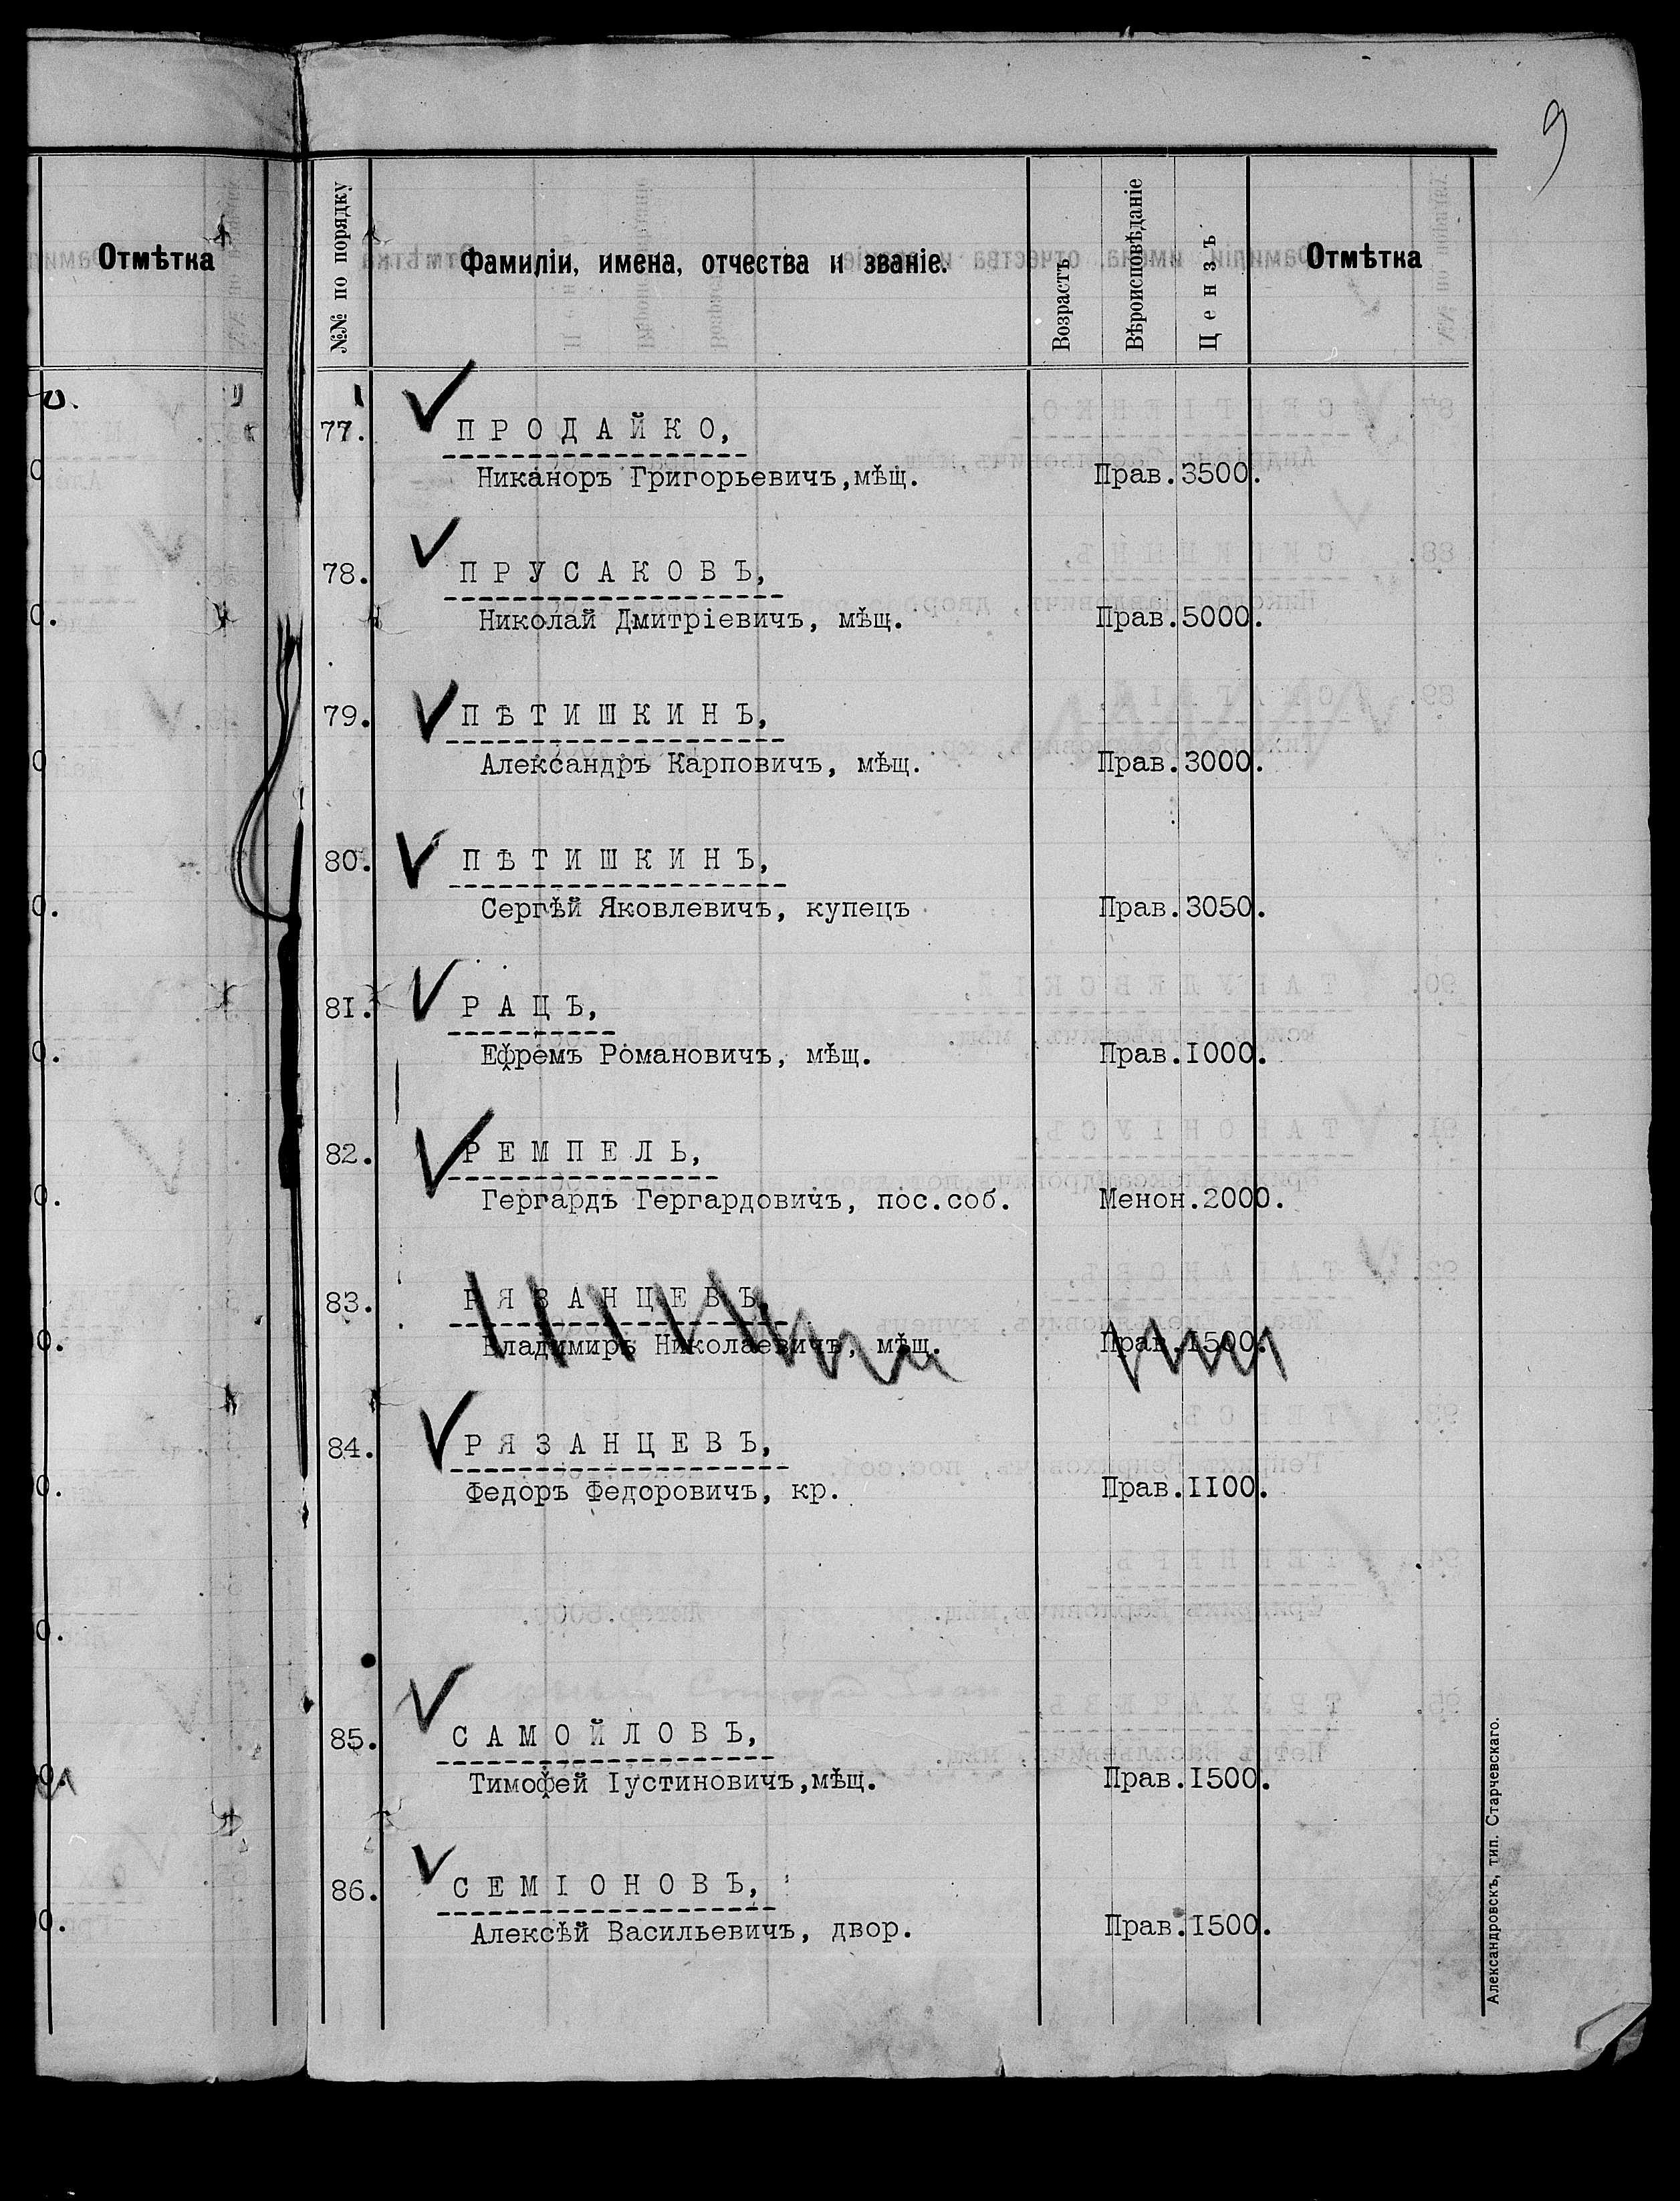 9
Отмѣтка
№№ по порядку
Фамиліи, имена, отчества и званіе.
Возрастъ
Вѣроисповѣданіе
Цензъ
Отмѣтка
77. ПРОДАЙКО,
Никаноръ Григорьевичъ,мѣщ. Прав.3500.
78. ПРУСАКОВЪ,
Николай Дмитріевичъ, мѣщ. Прав.5000.
79. ПѢТИШКИНЪ,
Александръ Карповичъ, мѣщ. Прав.3000.
80. ПѢТИШКИНЪ,
Сергѣй Яковлевичъ, купецъ Прав.3050.
81. РАЦЪ,
Ефремъ Романовичъ, мѣщ. Прав.1000.
82. РЕМПЕЛЬ,
Гергардъ Гергардовичъ, пос.соб. Менон.2000.
83. РЯЗАНЦЕВЪ,
Владимиръ Николаевичъ, мѣщ. Прав.1500.
84. РЯЗАНЦЕВЪ,
Федоръ Федоровичъ, кр. Прав.1100.
85. САМОЙЛОВЪ,
Тимофей Іустиновичъ,мѣщ. Прав.1500.
86. СЕМІОНОВЪ,
Алексѣй Васильевичъ, двор. Прав.1500.
Александровскъ, тип. Старчевскаго.